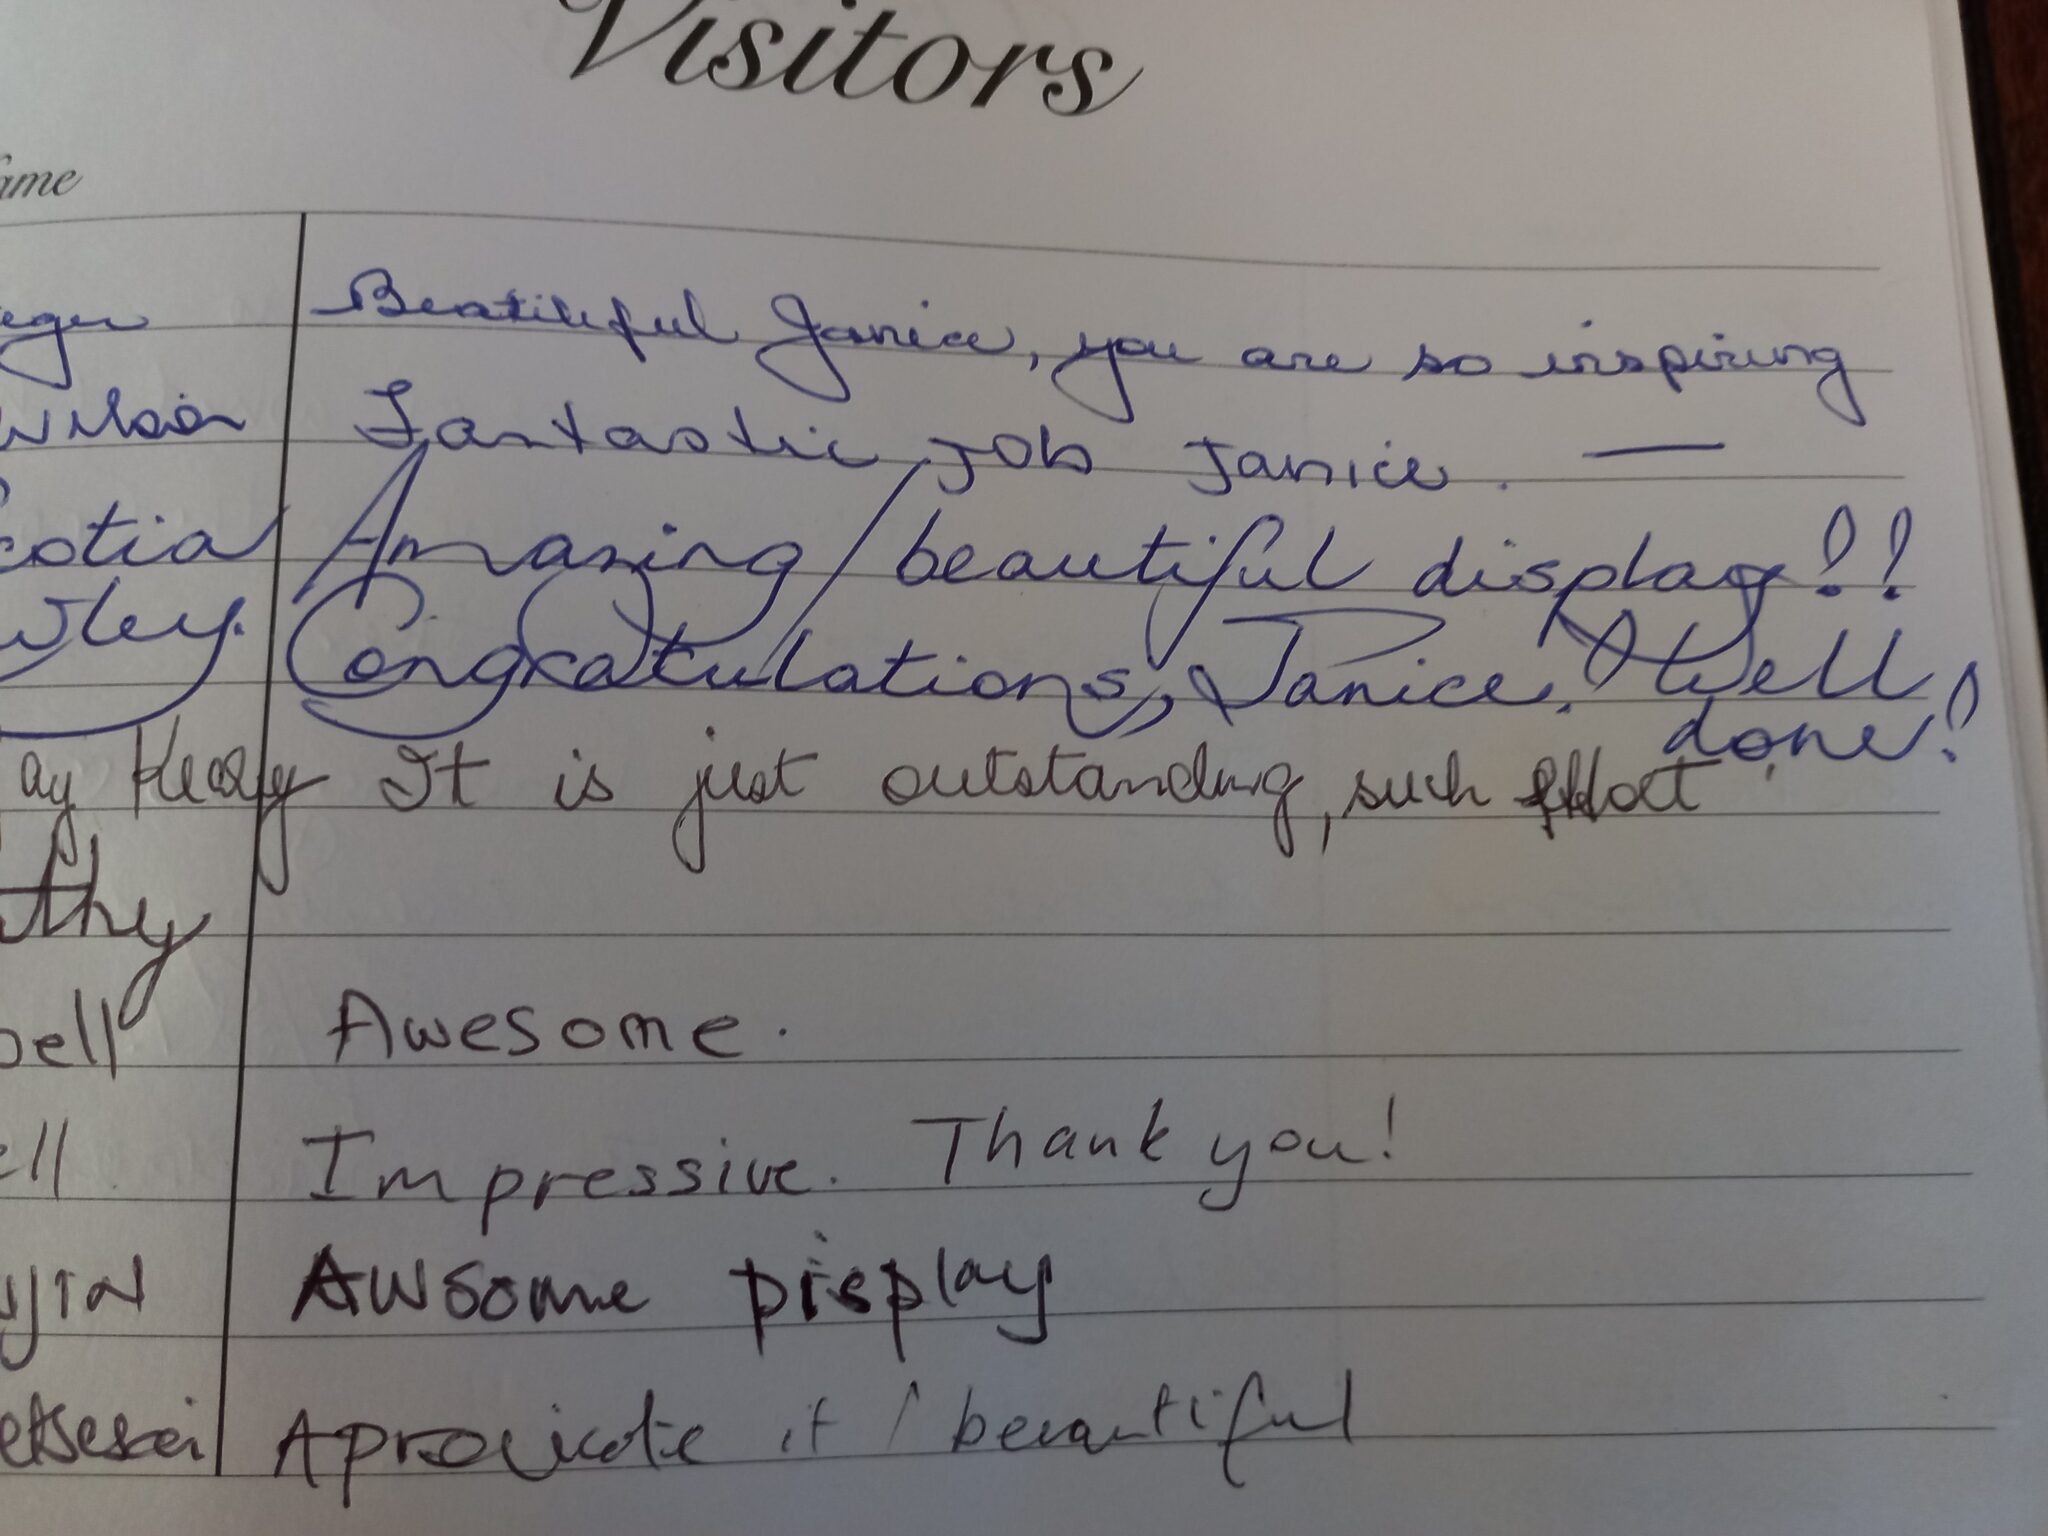 Visitors
ame
eger Beatiful Janice, you are so inspiring
Wilson Fantastic Job Janice. —
cotia Amazing / beautiful display!!
wley. Congratulations, Janice. Well
done!
ay Healy It is just outstanding, such effort
thy
bell Awesome.
ell Impressive. Thank you!
JIN Awsome Display
etsesei Aproxicate it / beautiful